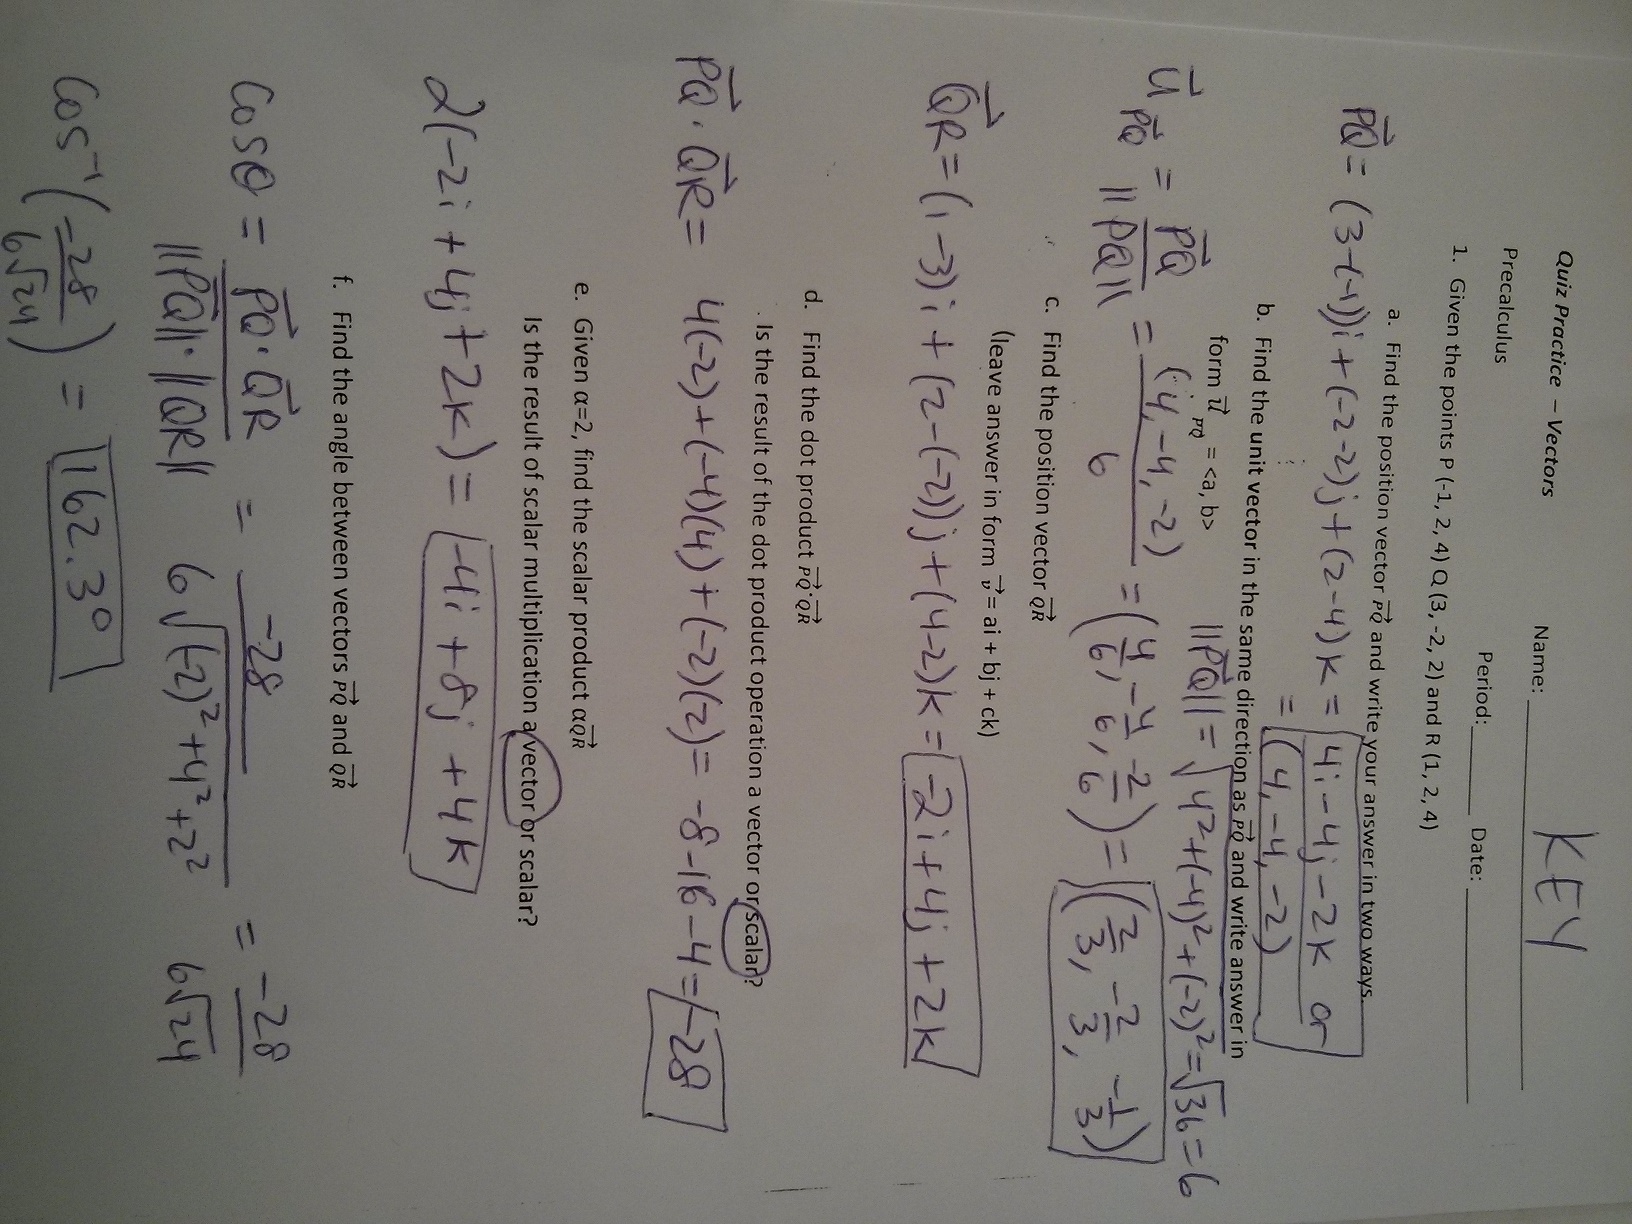 Quiz Practice – Vectors Name: KEY
Precalculus Period: Date:
1. Given the points P (-1, 2, 4) Q (3, -2, 2) and R (1, 2, 4)
a. Find the position vector PQ and write your answer in two ways.
PQ = (3-(-1))i + (-2-2)j + (2-4)k = 4i - 4j - 2k or
= (4, -4, -2)
b. Find the unit vector in the same direction as PQ and write answer in
form u PQ = <a, b>
||PQ|| = √4²+(-4)²+(-2)² = √36 = 6
u PQ = PQ / ||PQ|| = (4, -4, -2) / 6 = (4/6, -4/6, -2/6) = (2/3, -2/3, -1/3)
c. Find the position vector QR
(leave answer in form v = ai + bj + ck)
QR = (1-3)i + (2-(-2))j + (4-2)k = -2i + 4j + 2k
d. Find the dot product PQ·QR
Is the result of the dot product operation a vector or scalar?
PQ · QR = 4(-2) + (-4)(4) + (-2)(2) = -8-16-4 = -28
e. Given α=2, find the scalar product αQR
Is the result of scalar multiplication a vector or scalar?
2(-2i + 4j + 2k) = -4i + 8j + 4k
f. Find the angle between vectors PQ and QR
cosθ = PQ · QR / ||PQ|| · ||QR|| = -28 / 6√(-2)²+4²+2² = -28 / 6√24
cos⁻¹(-28 / 6√24) = 162.3°